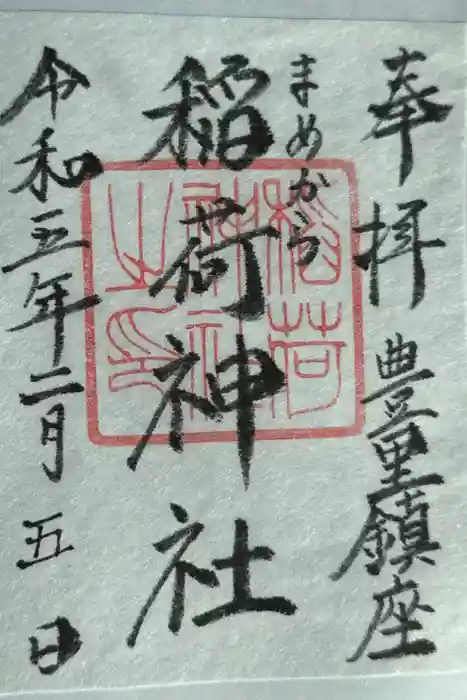 奉拝
豊里鎮座
まめがら
稲荷神社
令和五年二月五日
稲荷
神社
之印